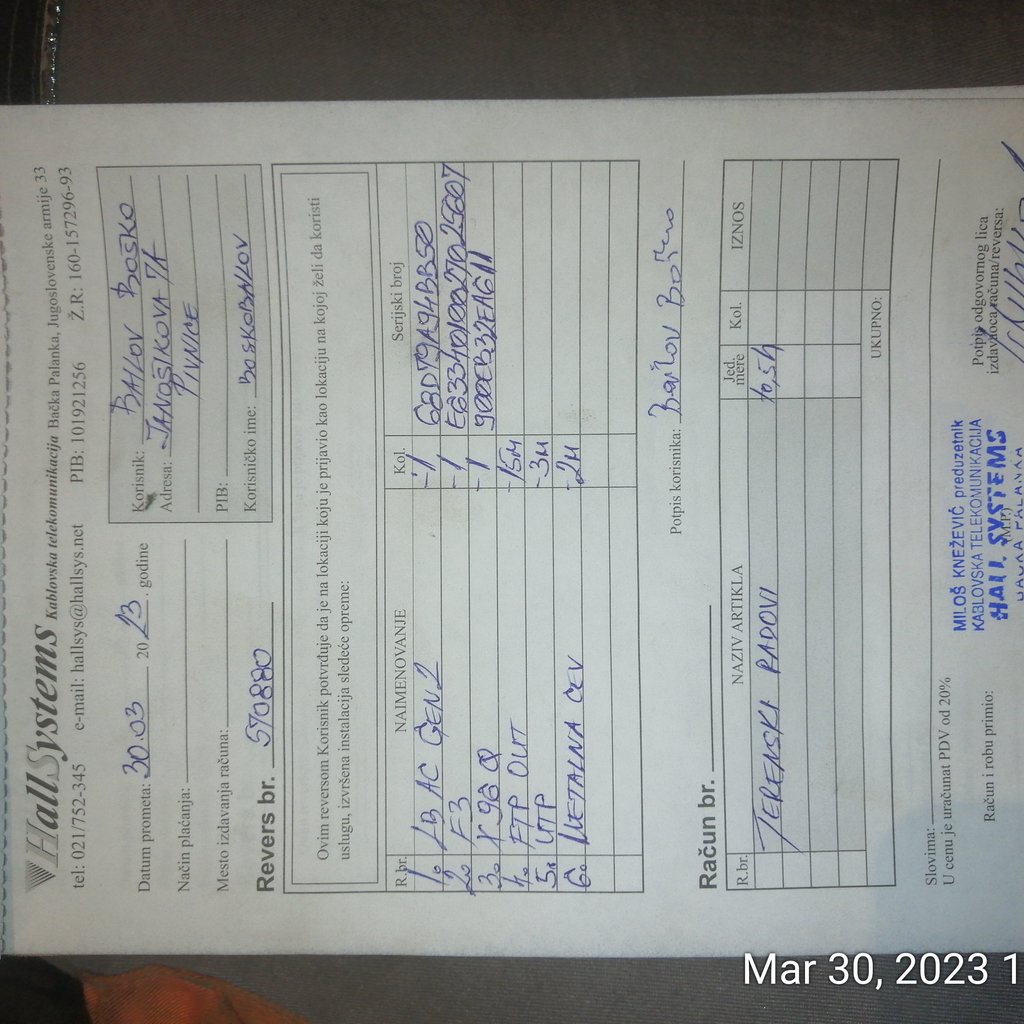 HallSystems Kablovska telekomunikacija Bačka Palanka, Jugoslovenske armije 33
tel: 021/752-345 e-mail: hallsys@hallsys.net PIB: 101921256 Ž.R: 160-157296-93
Datum prometa: 30.03 20 23. godine
Način plaćanja:
Mesto izdavanja računa:
Korisnik: BAILOV BOŠKO
Adresa: JANOŠIKOVA 7A
PIVNICE
PIB:
Korisničko ime: BOSKOBAILOV
Revers br. 570880
Ovim reversom Korisnik potvrđuje da je na lokaciji koju je prijavio kao lokaciju na kojoj želi da koristi
uslugu, izvršena instalacija sledeće opreme:
R.br. NAIMENOVANJE Kol. Serijski broj
1. LB AC GEN2 -1 68D79A94BB50
2. F3 -1 E6334010027025607
3. X98Q -1 900EB32EA611
4. FTP OUT -15M
5. UTP -3M
6. METALNA CEV -2M
Potpis korisnika: Bailov Boško
Račun br.
R.br. NAZIV ARTIKLA Jed. mere Kol. IZNOS
TERENSKI RADOVI 10,5h
UKUPNO:
Slovima:
U cenu je uračunat PDV od 20%
Račun i robu primio:
(M.P.)
MILOŠ KNEŽEVIĆ preduzetnik
KABLOVSKA TELEKOMUNIKACIJA
HALL SYSTEMS
BAČKA PALANKA
Potpis odgovornog lica
izdavaoca računa/reversa:
Mar 30, 2023 1